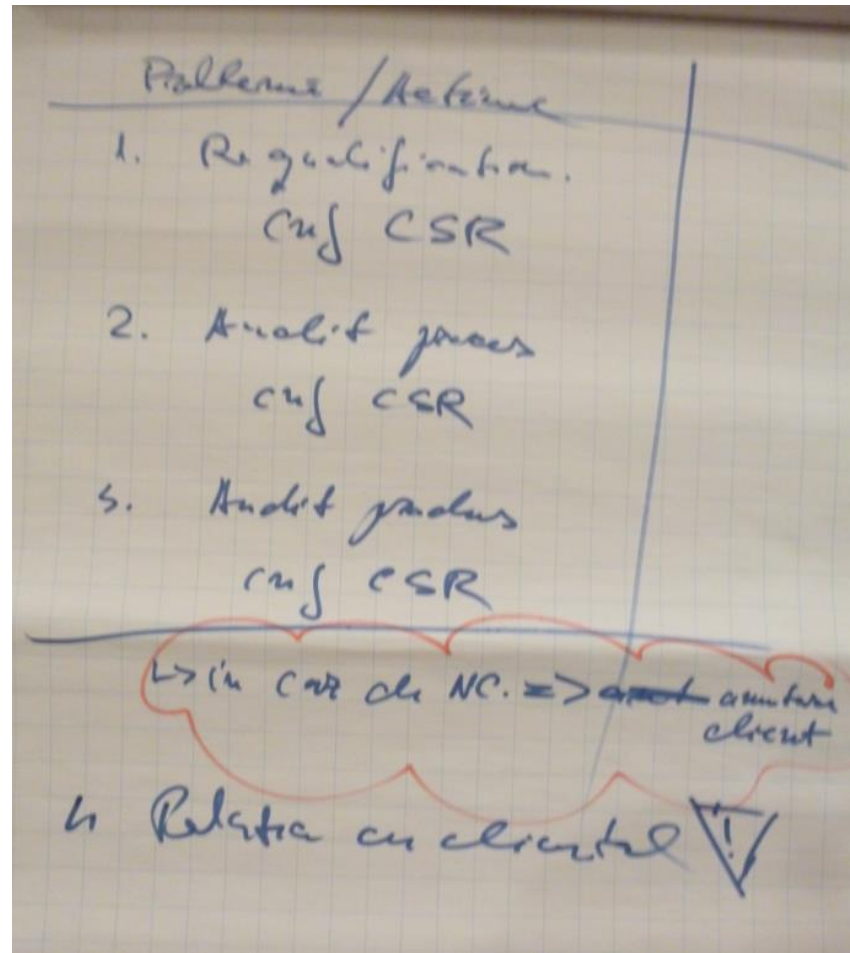 Probleme / Actiune
1. Requalification.
cnf CSR
2. Audit proces
cnf CSR
3. Audit produs
cnf CSR
↳ in caz de NC. => anuntare
client
4 Relatia cu clientul !